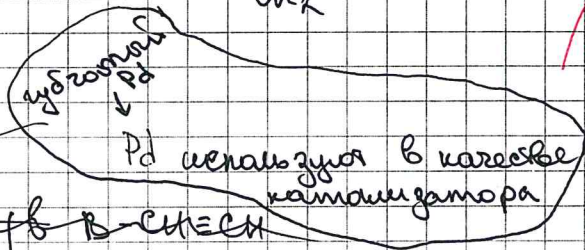 губчатый
Pd
↓
Pd используют в качестве
катализатора
B - CH≡CH